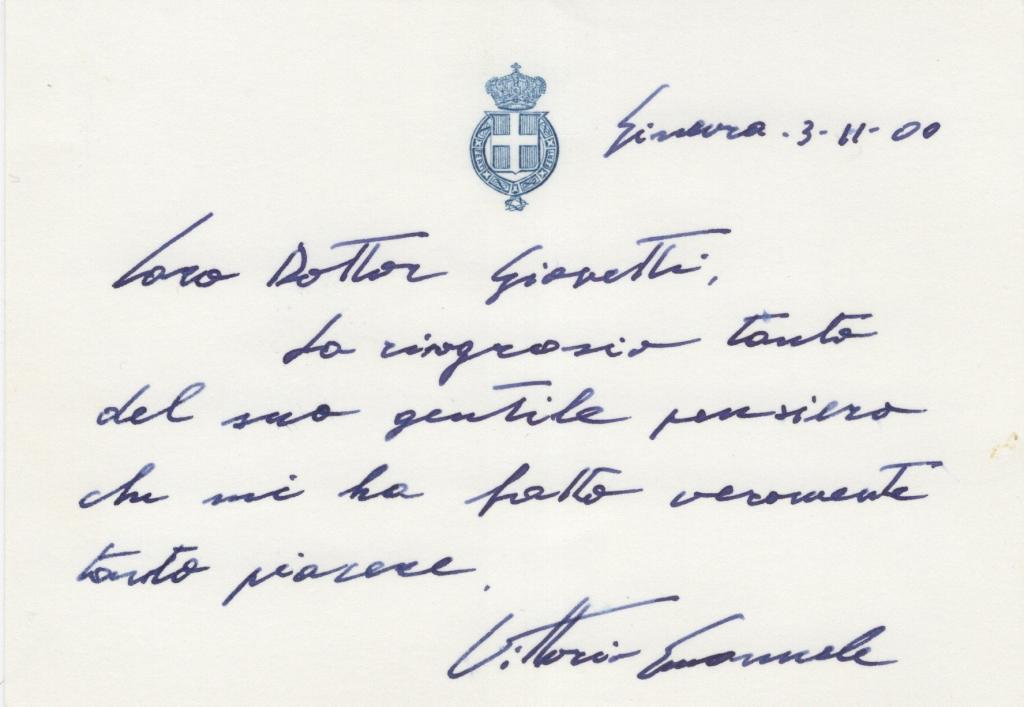 Ginevra . 3-11-00
Caro Dottor Giovetti,
La ringrazio tanto
del suo gentile pensiero
che mi ha fatto veramente
tanto piacere.
Vittorio Emanuele